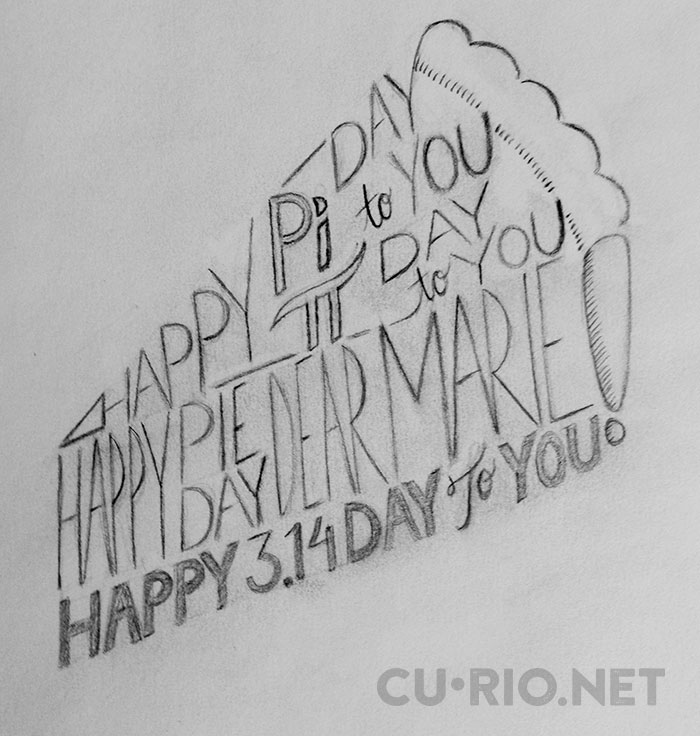 HAPPY Pi DAY to YOU
π DAY to YOU
HAPPY PIE DAY DEAR MARIE!
HAPPY 3.14 DAY To YOU!
CU•RIO.NET